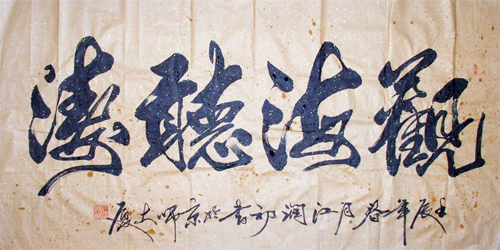 觀海聽濤
壬辰年春月江润初書於京師大厦